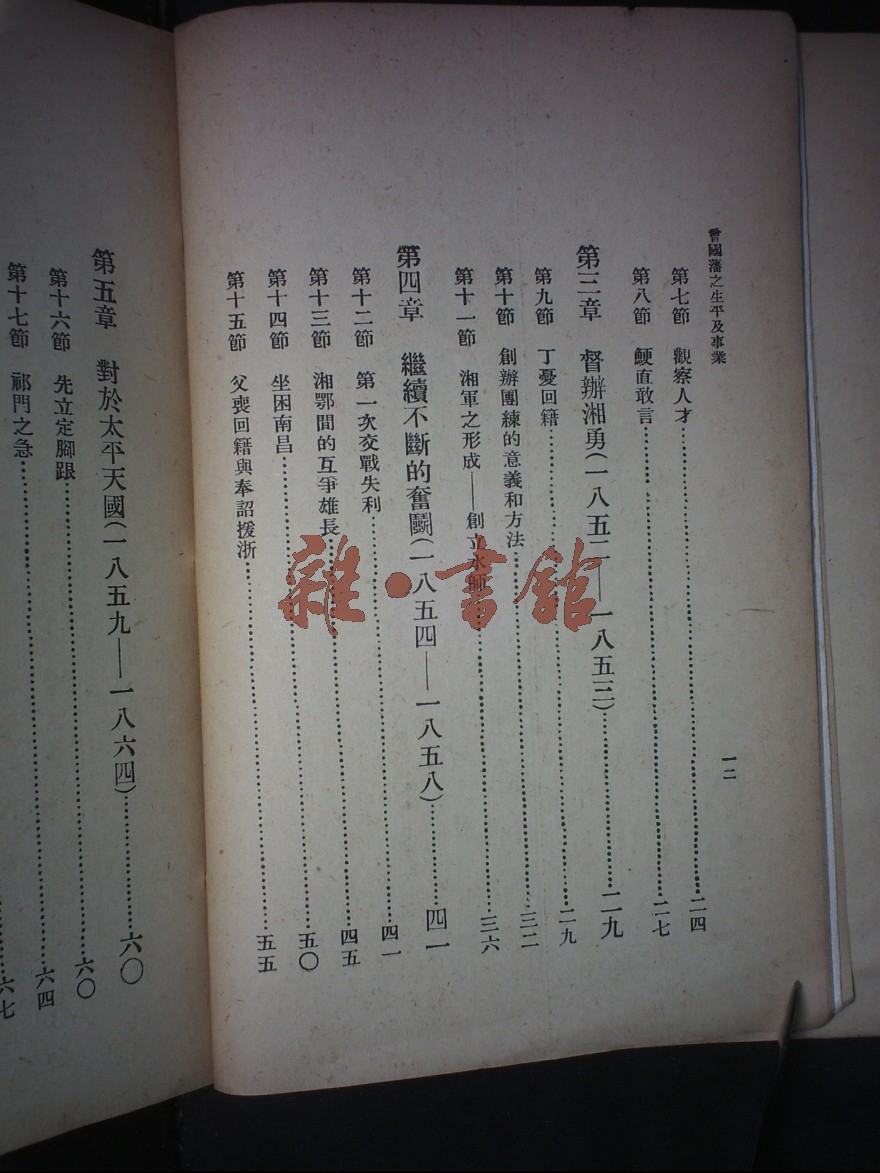 曾國藩之生平及事業
一二
第七節 觀察人才……二四
第八節 鯁直敢言……二七
第三章 督辦湘勇(一八五二——一八五三)……二九
第九節 丁憂回籍……二九
第十節 創辦團練的意義和方法……三二
第十一節 湘軍之形成——創立水師……三六
第四章 繼續不斷的奮鬭(一八五四——一八五八)……四一
第十二節 第一次交戰失利……四一
第十三節 湘鄂間的互爭雄長……四五
第十四節 坐困南昌……五〇
第十五節 父喪回籍與奉詔援浙……五五
第五章 對於太平天國(一八五九——一八六四)……六〇
第十六節 先立定腳跟……六〇
第十七節 祁門之急……六四
六七
雜·書館